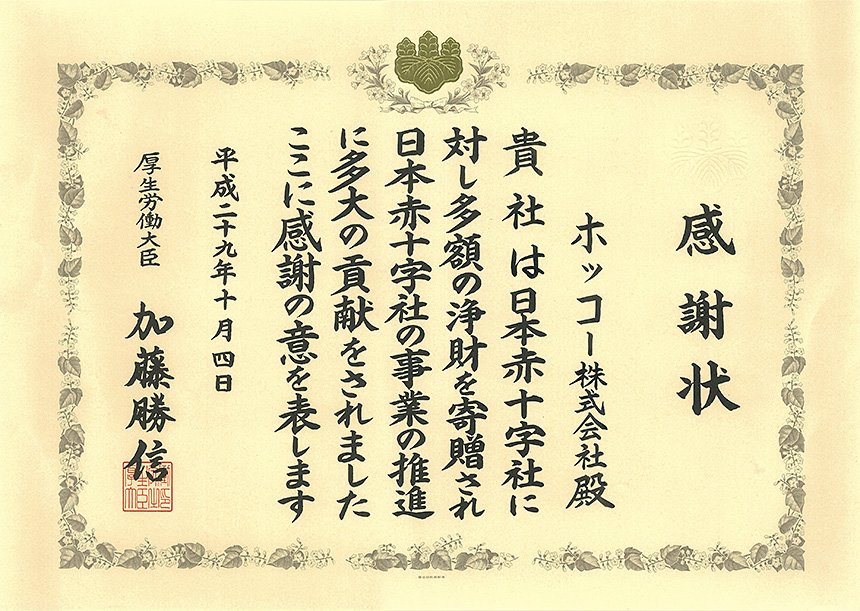 感謝状
ホッコー株式会社殿
貴社は日本赤十字社に
対し多額の浄財を寄贈され
日本赤十字社の事業の推進
に多大の貢献をされました
ここに感謝の意を表します
平成二十九年十月四日
厚生労働大臣
加藤勝信